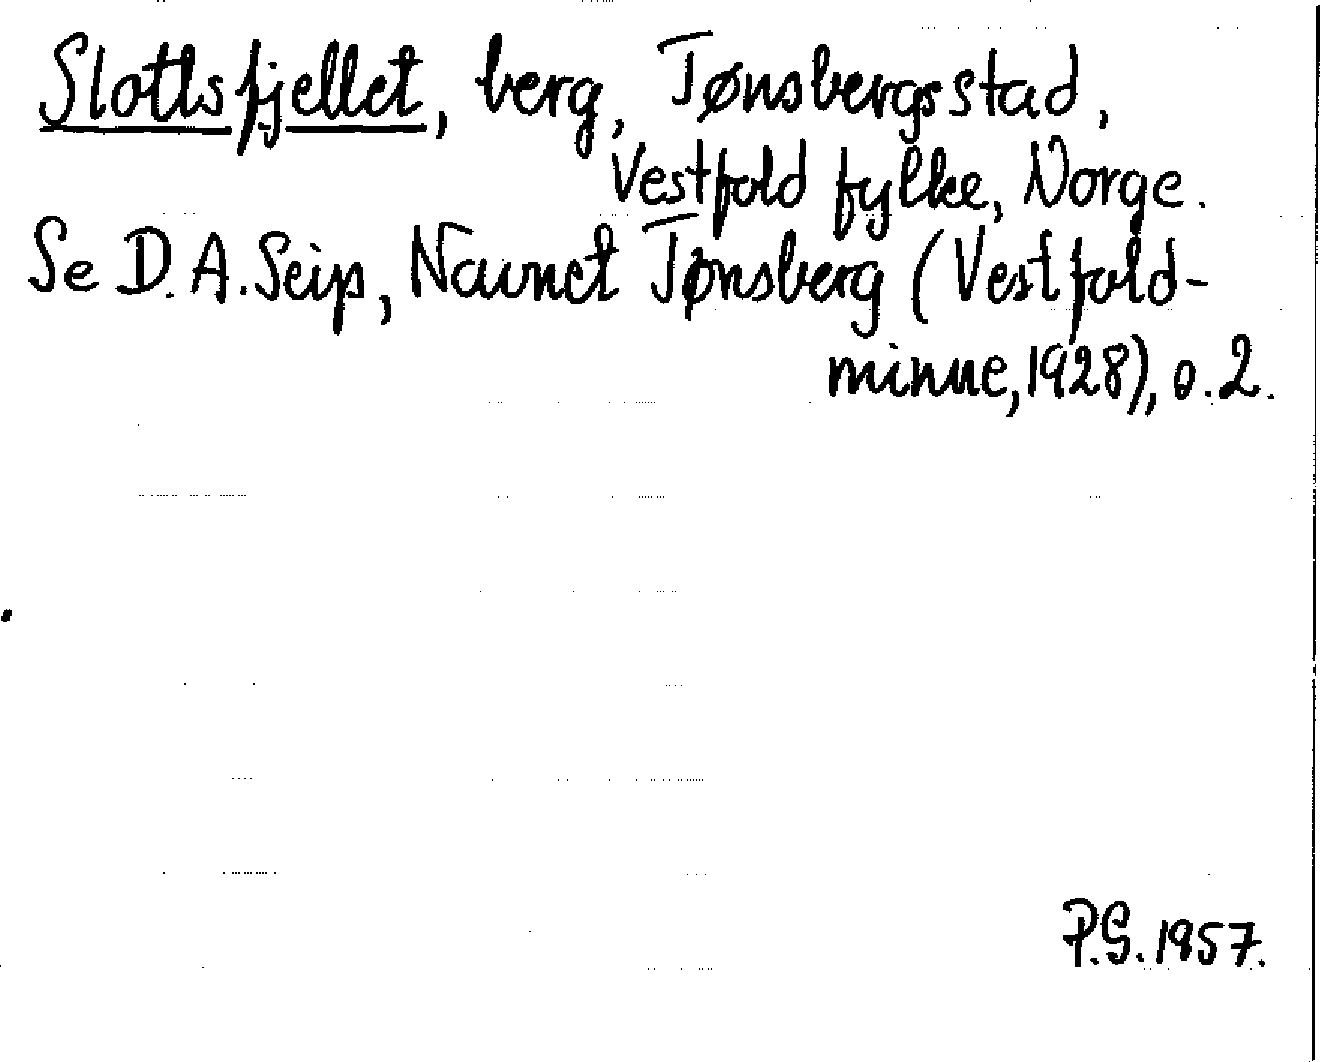 Slottsfjellet, berg, Tønsbergsstad,
Vestfold fylke, Norge.
Se D. A. Seip, Navnet Tønsberg (Vestfold-
minne, 1928), s. 2.
P.G. 1957.